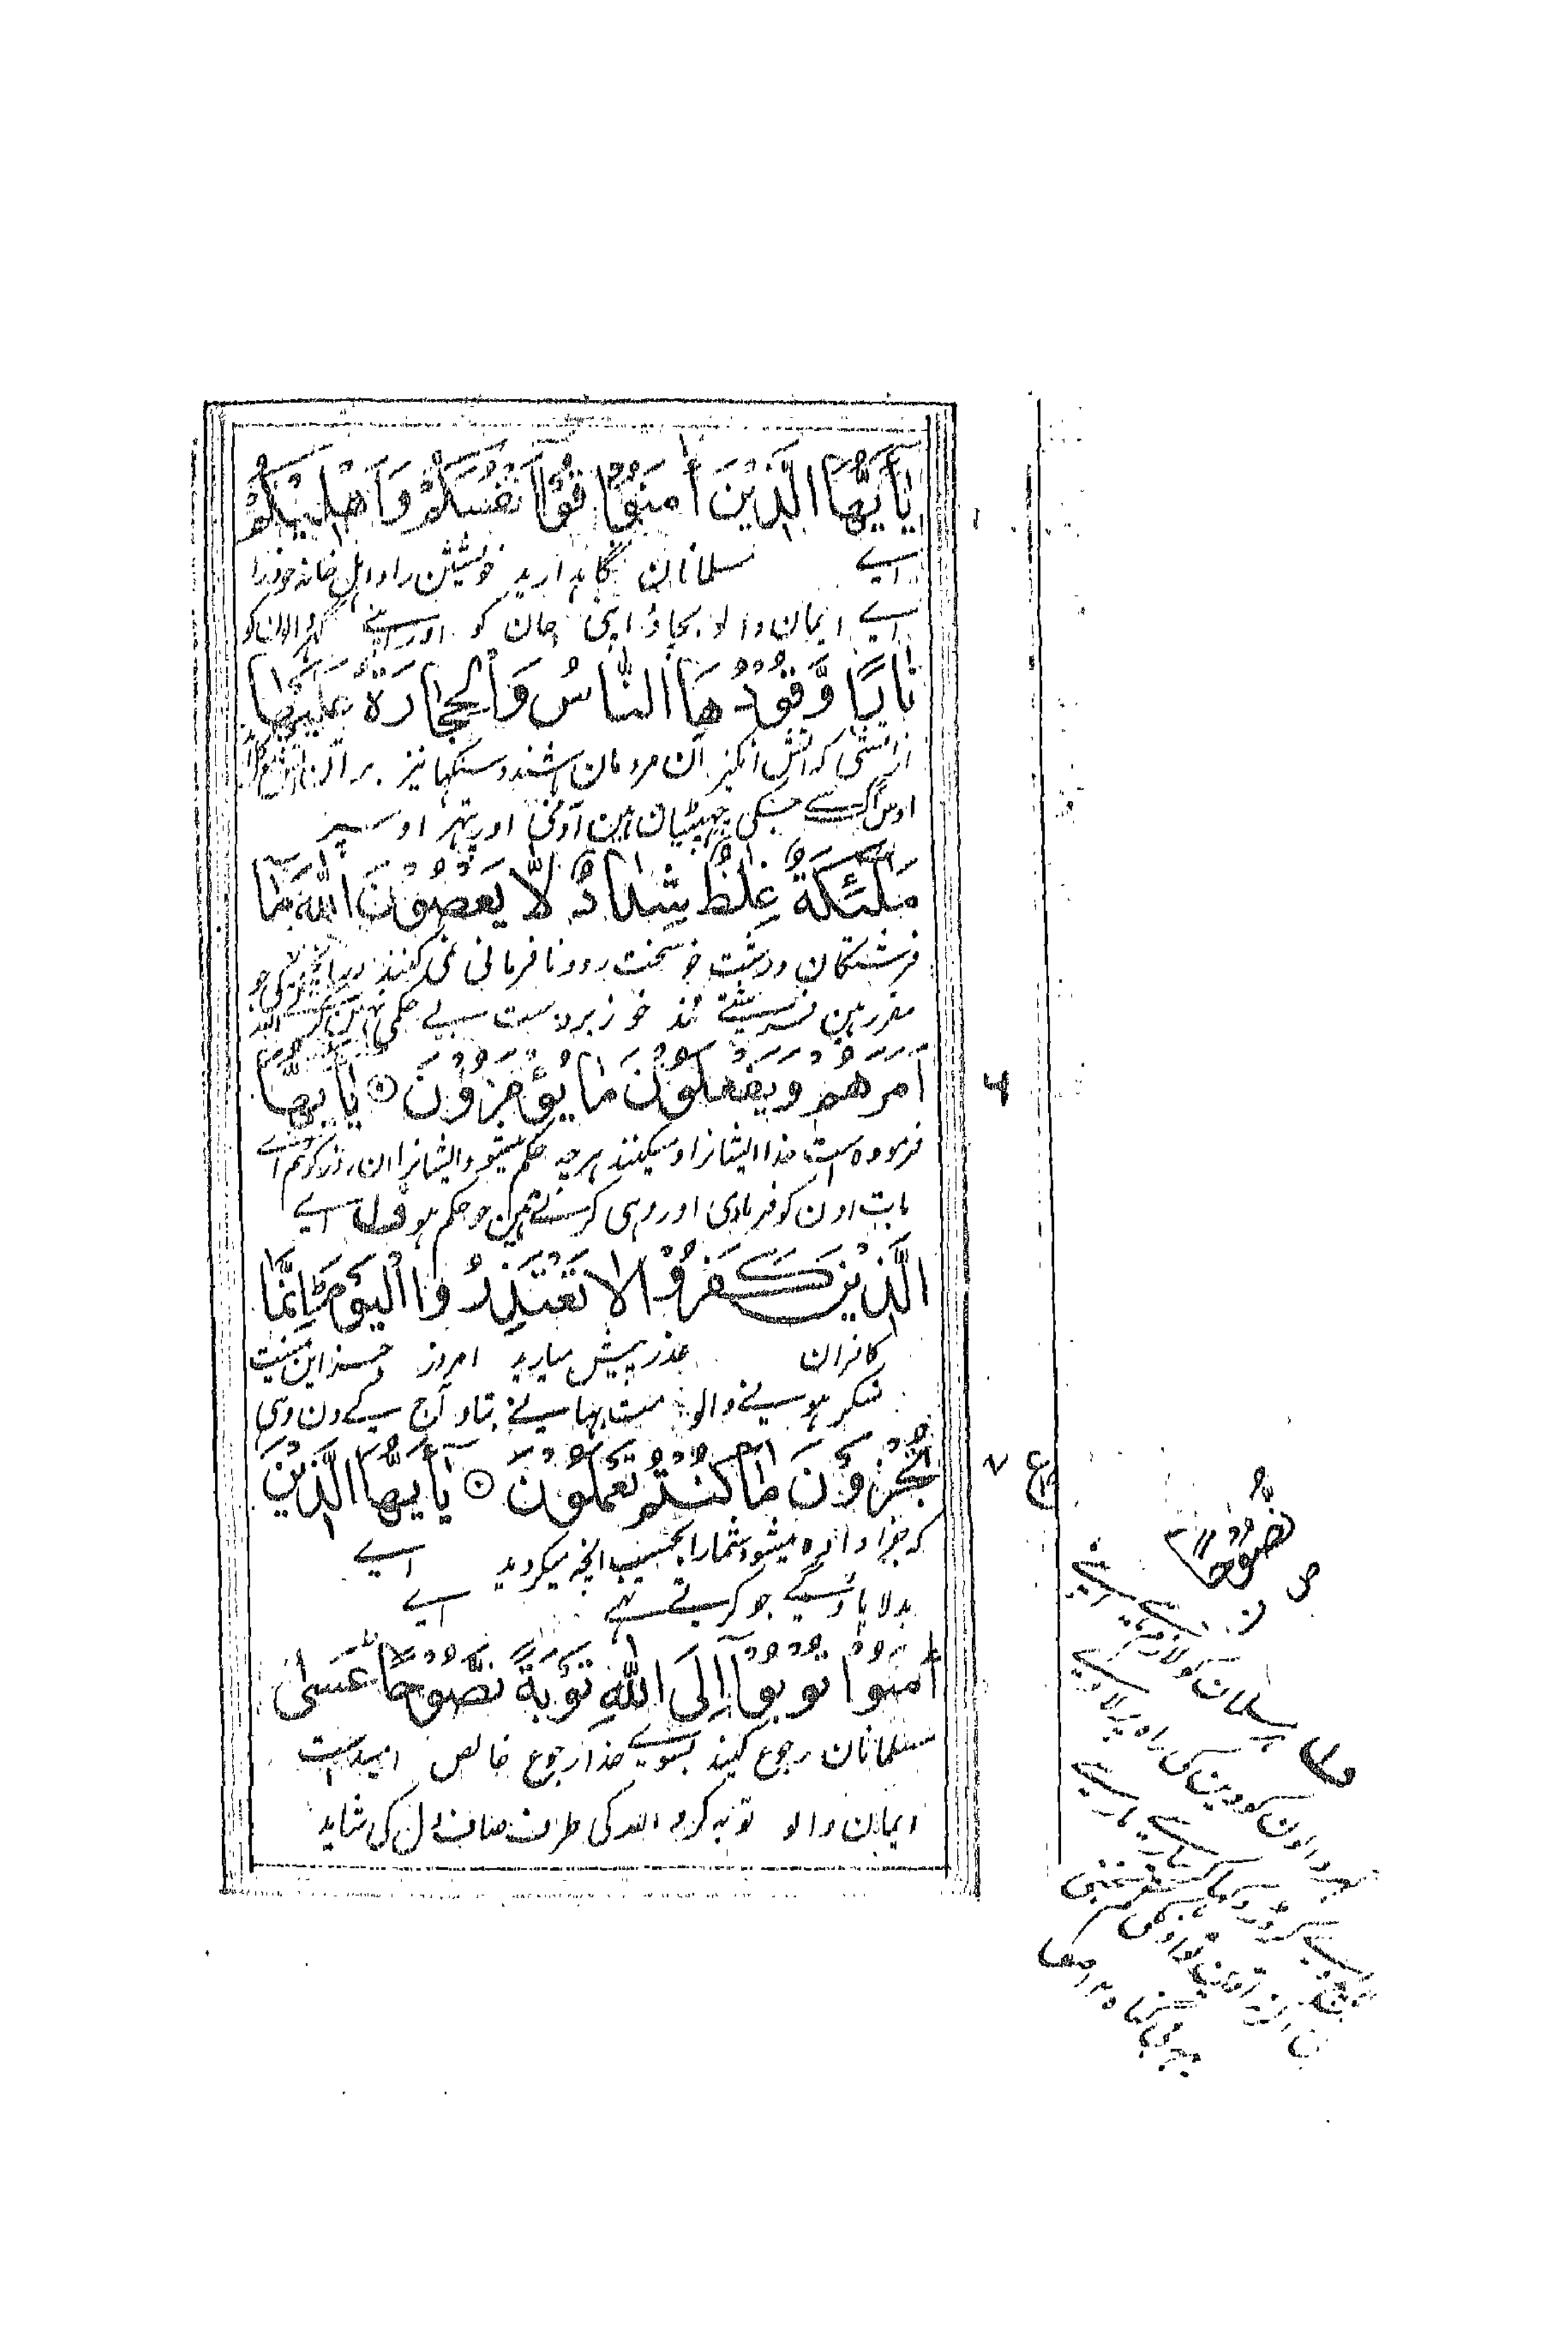 يٰٓاَيُّهَا الَّذِيْنَ اٰمَنُوْا قُوْٓا اَنْفُسَكُمْ وَاَهْلِيْكُمْ
اے مسلمانان نگاہدارید خویشتن را و اہل خانہ خود را
اے ایمان والو بچاؤ اپنی جان کو اور اپنے گھر والون کو
نَارًا وَّقُوْدُهَا النَّاسُ وَالْحِجَارَةُ عَلَيْهَا
از آتشی کہ آتش انگیز آن مردمان باشند و سنگہا نیز بر آن
اوس آگ سے جسکی چھپٹیان ہین آدمی اور پتھر اوسپر
مَلٰٓئِكَةٌ غِلَاظٌ شِدَادٌ لَّا يَعْصُوْنَ اللّٰهَ مَآ
فرشتگان درشت خو سخت رو و نافرمانی نمی کنند
مقرر ہین فرشتے تند خو زبردست بے حکمی نہین کرتے اللہ
اَمَرَهُمْ وَيَفْعَلُوْنَ مَا يُؤْمَرُوْنَ ۝ يٰٓاَيُّهَا ٦
فرمودہ است خدا ایشانرا و میکنند ہر چہ حکم میشود ایشانرا آن روز گوئیم اے
بات اون کو فرمادی اور وہی کرتے ہین جو حکم ہو ف اے
الَّذِيْنَ كَفَرُوْا لَا تَعْتَذِرُوا الْيَوْمَ ؕ اِنَّمَا
کافران عذر پیش میارید امروز جز این نیست
منکر ہونے والو مت بہانے بتاؤ آج کے دن وہی
تُجْزَوْنَ مَا كُنْتُمْ تَعْمَلُوْنَ ۝ يٰٓاَيُّهَا الَّذِيْنَ ٧ ع
کہ جزا دادہ میشود شمارا بحسب آنچہ میکردید اے
بدلا پاؤگے جو کرتے تہے اے
اٰمَنُوْا تُوْبُوْٓا اِلَى اللّٰهِ تَوْبَةً نَّصُوْحًا ؕ عَسٰى
مسلمانان رجوع کنید بسوے خدا رجوع خالص امید است
ایمان والو توبہ کرو اللہ کی طرف صاف دل کی شاید
نُصُوْحًا
ص
ف مسلمان کو لازم ہے اپنے
کو دین کی راہ پر لاوے